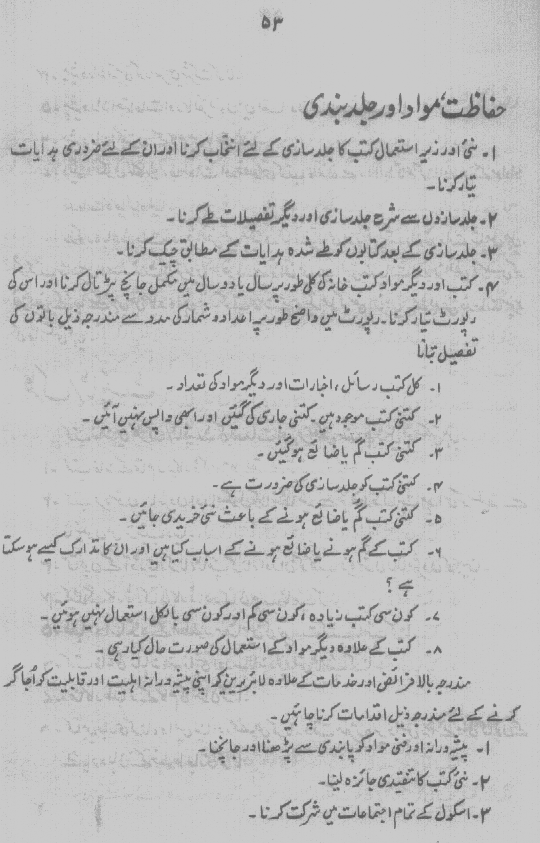 ۵۳
حفاظت، مواد اور جلد بندی
۱۔ نئی اور زیر استعمال کتب کا جلد سازی کے لئے انتخاب کرنا اور ان کے لئے ضروری ہدایات
تیار کرنا۔
۲۔ جلد سازوں سے شرح جلد سازی اور دیگر تفصیلات طے کرنا۔
۳۔ جلد سازی کے بعد کتابوں کو طے شدہ ہدایات کے مطابق چیک کرنا۔
۴۔ کتب اور دیگر مواد کتب خانہ کی کلی طور پر سال یا دو سال میں مکمل جانچ پڑتال کرنا اور اس کی
رپورٹ تیار کرنا۔ رپورٹ میں واضح طور پر اعداد و شمار کی مدد سے مندرجہ ذیل باتوں کی
تفصیل بتانا
۱۔ کل کتب، رسائل، اخبارات اور دیگر مواد کی تعداد۔
۲۔ کتنی کتب موجود ہیں۔ کتنی جاری کی گئیں اور ابھی واپس نہیں آئیں۔
۳۔ کتنی کتب گم یا ضائع ہو گئیں۔
۴۔ کتنی کتب کو جلد سازی کی ضرورت ہے۔
۵۔ کتنی کتب گم یا ضائع ہونے کے باعث نئی خریدی جائیں۔
۶۔ کتب کے گم ہونے یا ضائع ہونے کے اسباب کیا ہیں اور ان کا تدارک کیسے ہو سکتا
ہے؟
۷۔ کون سی کتب زیادہ، کون سی کم اور کون سی بالکل استعمال نہیں ہوئیں۔
۸۔ کتب کے علاوہ دیگر مواد کے استعمال کی صورت حال کیا رہی۔
مندرجہ بالا فرائض اور خدمات کے علاوہ لائبریرین کو اپنی پیشہ ورانہ اہلیت اور قابلیت کو اُجاگر
کرنے کے لئے مندرجہ ذیل اقدامات کرنا چاہئیں۔
۱۔ پیشہ ورانہ اور فنی مواد کو پابندی سے پڑھنا اور جانچنا۔
۲۔ نئی کتب کا تنقیدی جائزہ لینا۔
۳۔ اسکول کے تمام اجتماعات میں شرکت کرنا۔